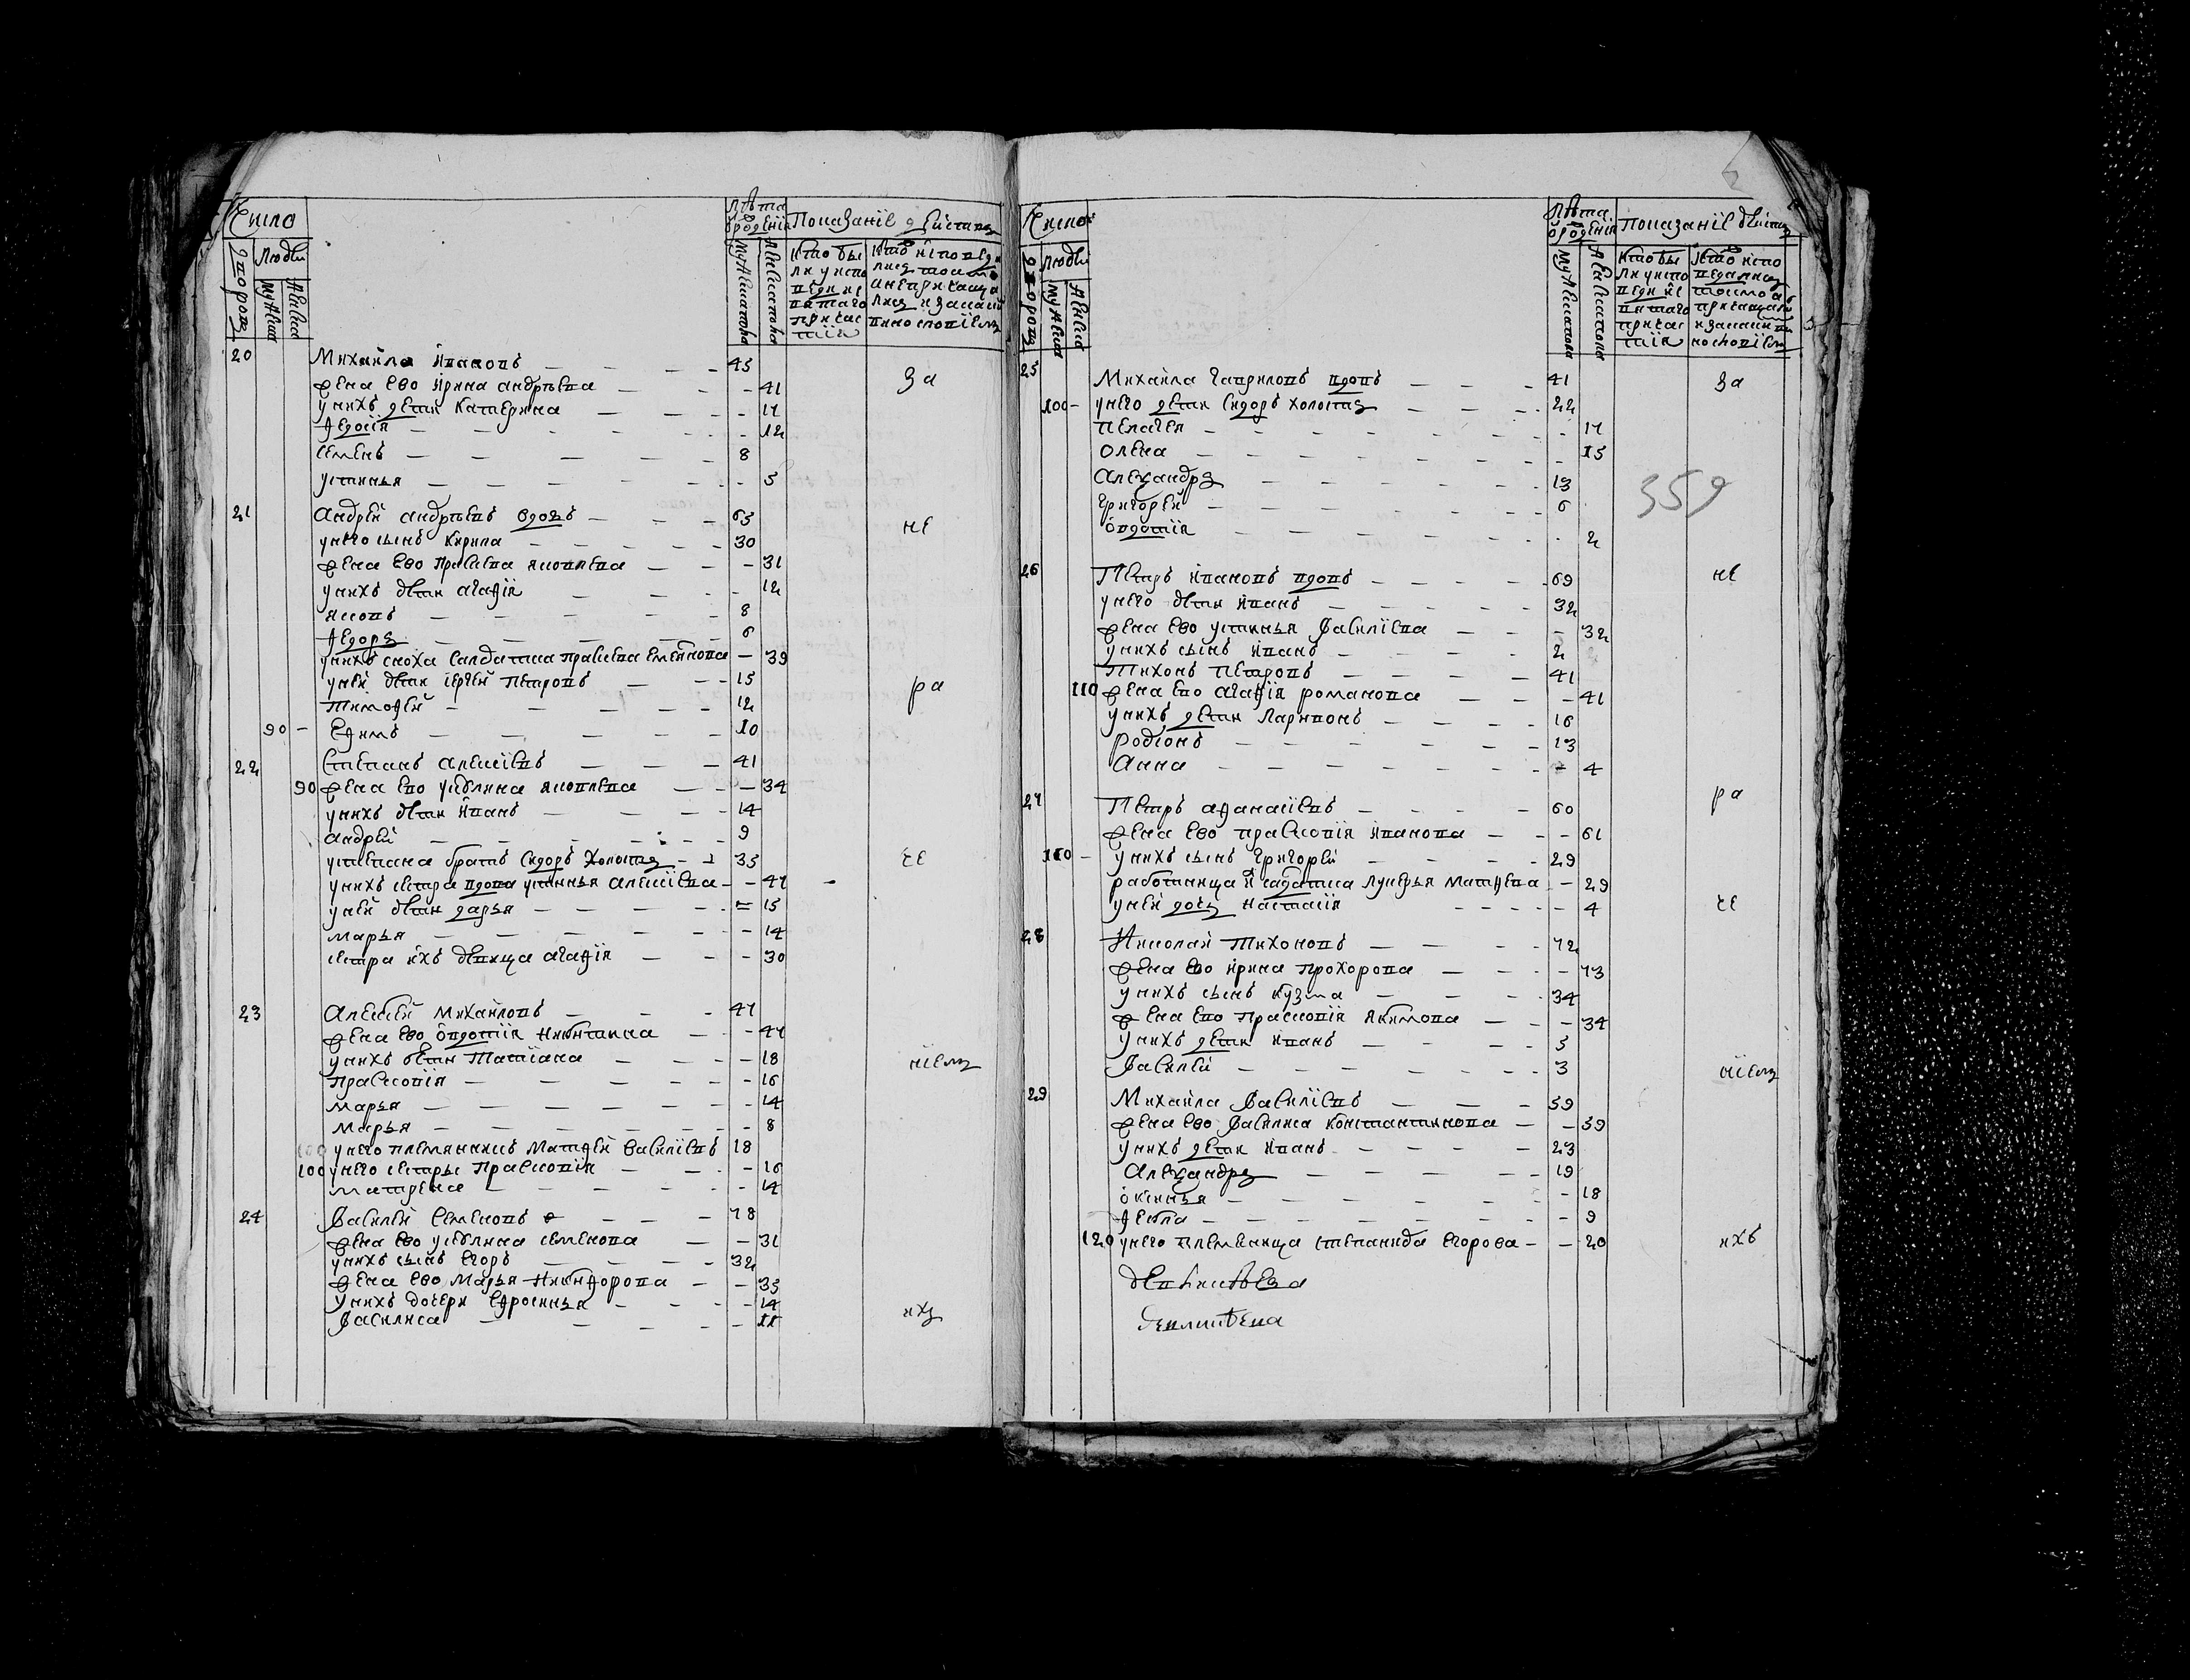 Число
Лѣта
ѿ рождениѧ
Показанїе дѣйства
дворовъ
Людей
мужеска
женска
мужеска пола
женска пола
Кто бы
ли у испо
веди и с
вятаго
причас
тия
20 Михайла Ивановъ 45
жена ево Ирина андрѣева 41
у нихъ дети Катерина 17
Федосїя 12
Семенъ 8
устинья 5
за
21 Андрей андрѣевъ вдовъ 65
у него сынъ Кирила 30
жена ево Праскева яковлева 31
у нихъ дети агафїя 12
яковъ 8
Федоръ 6
не
у нихъ сноха салдатка праскева 39
у ней дети сергей Петровъ 15
Тимофей 12
90 Ефимъ 10
ра
22 Степанъ алексѣевъ 41
90 жена ево улияна яковлева 34
у нихъ дети Иванъ 14
андрей 9
у степана братъ Сидоръ Холостъ 35
у нихъ сестра вдова устинья алексѣева 47
у ней дети дарья 15
марья 14
сестра ихъ девица агафїя 30
че
23 Алексѣй Михайловъ 47
жена ево овдотїя Никитина 47
у нихъ дети Татїана 18
прасковїя 16
марья 14
марья 8
100 у него племянникъ Матфей василїевъ 18
100 у него сестры Прасковїя 16
матрена 14
нїемъ
24 Василей Семеновъ 78
жена ево улияна семенова 31
у нихъ сынъ Егоръ 32
жена ево Марья Никифорова 35
у нихъ дочери Ефросинья 14
Василиса 11
ихъ
Число
Лѣта
ѿ рождениѧ
Показанїе дѣйства
дворовъ
Людей
мужеска
женска
мужеска пола
женска пола
Кто бы
ли у испо
веди и с
вятаго
причас
тия
25 Михайла гавриловъ вдовъ 41
100 у него дети Сидоръ холостъ 22
Пелагея 17
Олена 15
Александръ 13
Григорей 6
овдотїя 2
за
359
26 Петръ Ивановъ вдовъ 69
у него дети Иванъ 32
жена ево устинья Василїева 32
у нихъ сынъ Иванъ 2
Тихонъ Петровъ 41
110 жена ево агафїя романова 41
у нихъ дети Ларивонъ 16
родїонъ 13
Анна 4
не
27 Петръ афанасїевъ 60
жена ево прасковїя Иванова 61
110 у нихъ сынъ григорей 29
работница и салдатка лукерья Матфева 29
у ней дочь Настасїя 4
ра
че
28 Николай Тихоновъ 72
жена ево Ирина Прохорова 73
у нихъ сынъ Кузма 34
жена ево Прасковїя Якимова 34
у нихъ дети Иванъ 5
Василей 3
нїемъ
29 Михайла Василїевъ 59
жена ево Василиса константинова 59
у нихъ дети Иванъ 23
Александръ 19
оксинья 18
Фекла 9
120 у него племяница степанида Егорова 20
ихъ